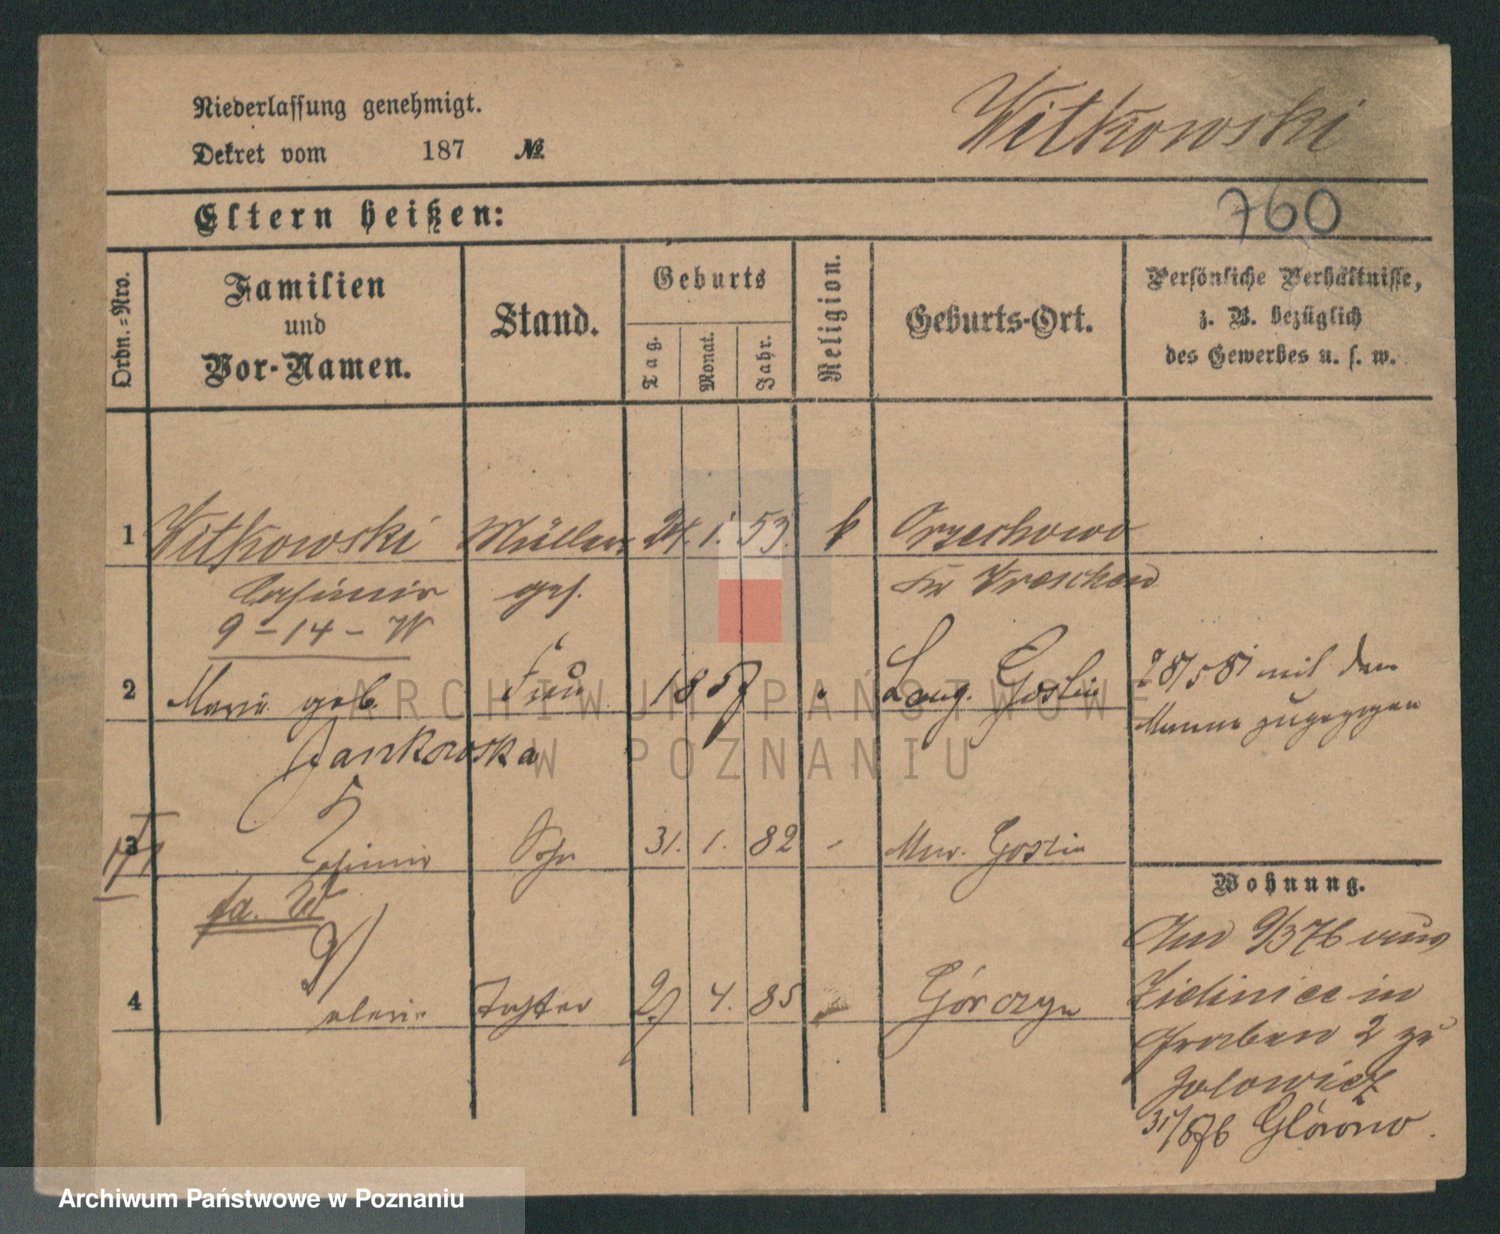 Niederlassung genehmigt.
Witkowski
Dekret vom 187 №
Eltern heißen:
760
Ordn.-Nro.
Familien
und
Vor-Namen.
Stand.
Geburts
Tag.
Monat.
Jahr.
Religion.
Geburts-Ort.
Persönliche Verhältnisse,
z. B. bezüglich
des Gewerbes u. s. w.
1 Witkowski Müller 24. 1. 53. k Orzechowo
Casimir ges. Kr Wreschen
9-14-W
2 Marie geb. Frau 1857 Lang. Goslin 28/5 81 mit dem
Jankowska Manne zugezogen
3 Casimir Sohn 31. 1. 82 Mur. Goslin
4 Valeria Tochter 27 4. 85 Górczyn
Wohnung.
Am 9/3 76 aus
Zielinice in
Graben 2 zu
Jolowicz
31/8 76 Glówno.
ARCHIWUM PAŃSTWOWE
W POZNANIU
Archiwum Państwowe w Poznaniu